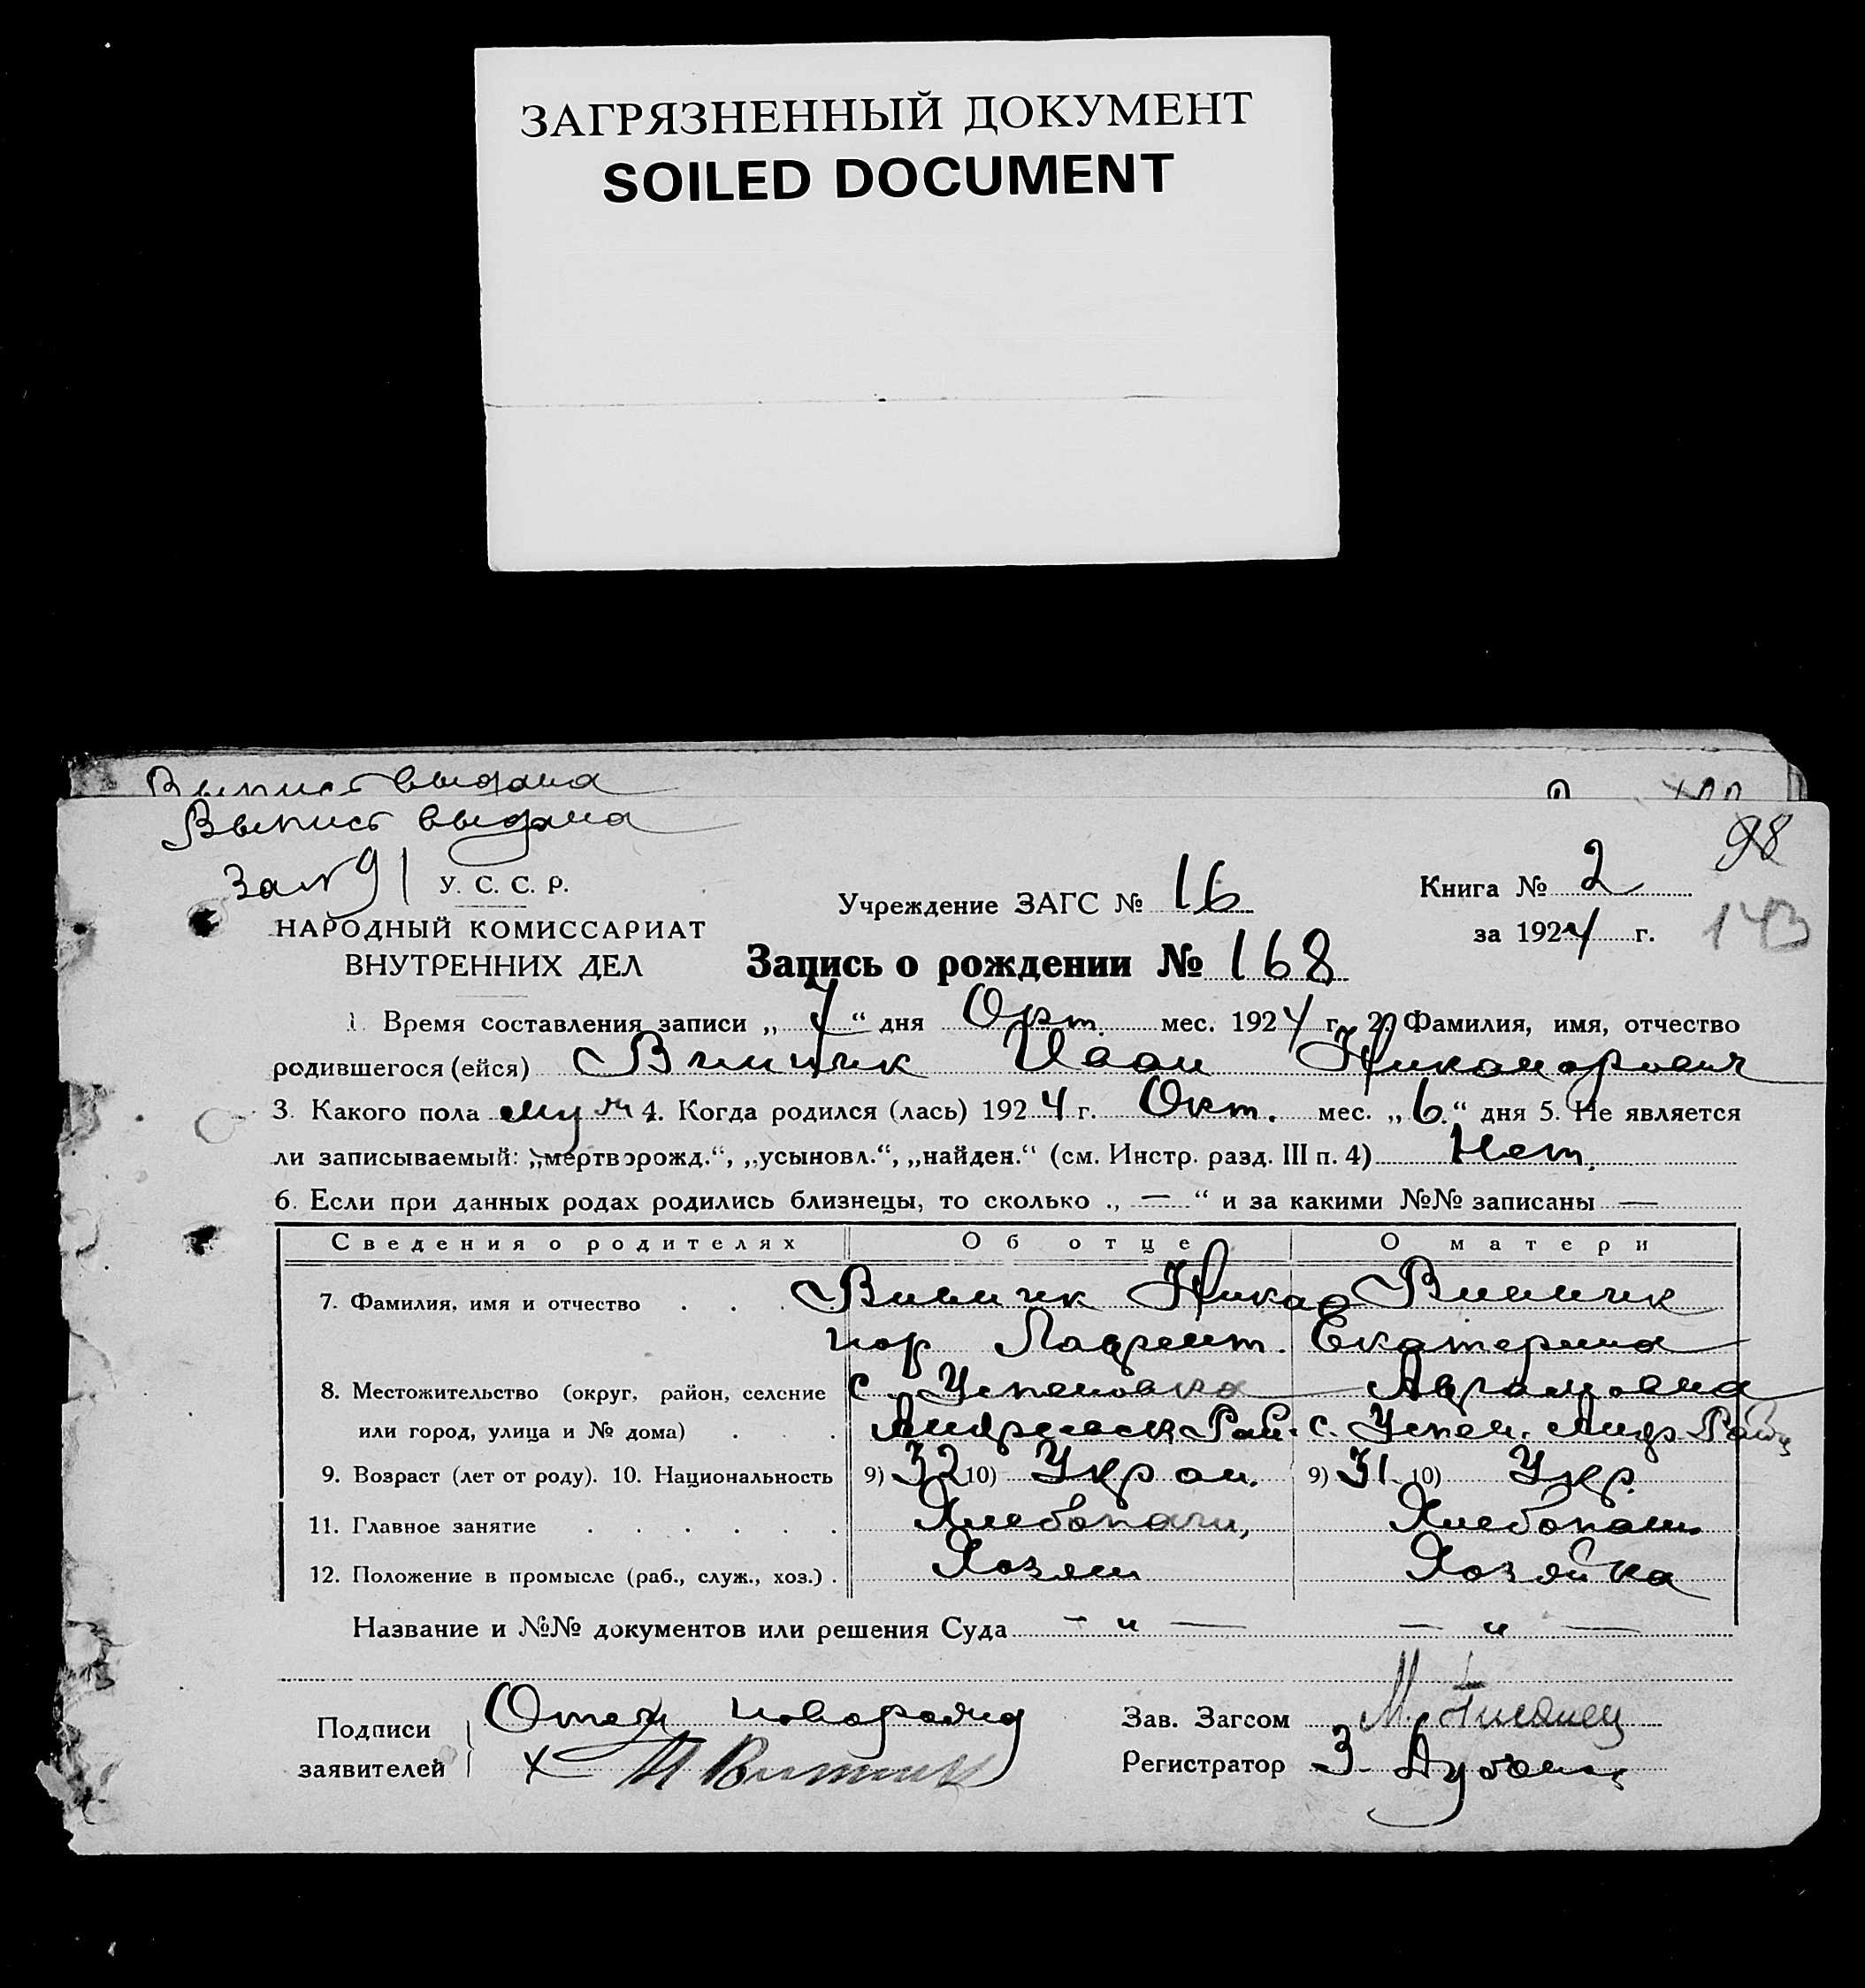 ЗАГРЯЗНЕННЫЙ ДОКУМЕНТ
SOILED DOCUMENT
Выпись выдана
Выпись выдана
98
За № 91
У. С. С. Р.
Учреждение ЗАГС № 16
Книга № 2
143
НАРОДНЫЙ КОМИССАРИАТ
за 1924 г.
ВНУТРЕННИХ ДЕЛ
Запись о рождении № 168
1. Время составления записи „ 7 “ дня Окт. мес. 1924 г. 2. Фамилия, имя, отчество
родившегося (ейся) Винник Иван Никанорович
3. Какого пола муж 4. Когда родился (лась) 1924 г. Окт. мес. „ 6. “ дня 5. Не является
ли записываемый: „мертворожд.“, „усыновл.“, „найден.“ (см. Инстр. разд. III п. 4) Нет.
6. Если при данных родах родились близнецы, то сколько „ — “ и за какими №№ записаны —
Сведения о родителях Об отце О матери
7. Фамилия, имя и отчество . . . Винник Никан Винник
нор Лаврент. Екатерина
8. Местожительство (округ, район, селение с. Успеновка Аврамовна
или город, улица и № дома) . . . Андреевск. Рай. с. Успен. Андр. Рай
9. Возраст (лет от роду). 10. Национальность 9) 32 10) Украи. 9) 31 10) Укр.
11. Главное занятие . . . . . . Хлебопаш, Хлебопаш.
12. Положение в промысле (раб., служ., хоз.) . Хозяин Хозяйка
Название и №№ документов или решения Суда — „ — — „ —
Подписи Отец новорожд Зав. Загсом М.
заявителей х Н Винник Регистратор З.